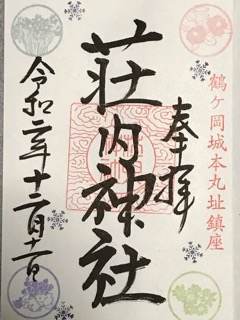 鶴ヶ岡城本丸址鎮座
奉拝
荘内神社
令和二年十二月十二日